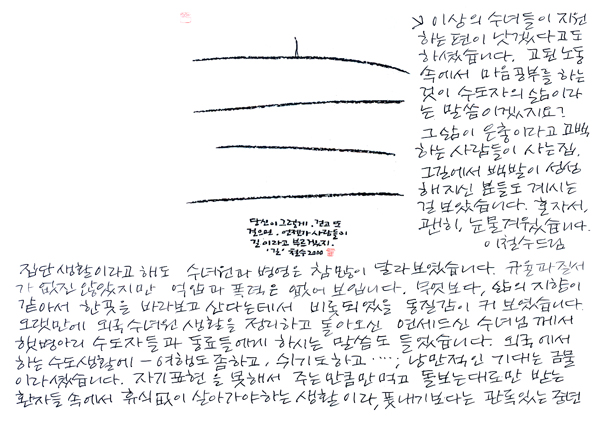 당신이 그렇게, 걷고 또
걸으면, 언젠가 사람들이
길이라고 부르겠지.
'길' 철수 2010
집단생활이라고 해도 수녀원과 병영은 참 많이 달라보였습니다. 규율과 질서
가 없진 않았지만 억압과 폭력은 없어 보입니다. 무엇보다, 삶의 지향이
같아서 한곳을 바라보고 산다는데서 비롯되었을 동질감이 커 보였습니다.
오랫만에 외국 수녀원 생활을 정리하고 돌아오신 연세드신 수녀님께서
햇병아리 수도자들과 동료들에게 하시는 말씀도 들었습니다. 외국에서
하는 수도생활에 - 여행도 좀하고, 쉬기도하고 ····; 낭만적인 기대는 금물
이라셨습니다. 자기표현을 못해서 주는만큼만 먹고 돌보는대로만 받는
환자들 속에서 휴식없이 살아가야하는 생활이라, 풋내기보다는 관록있는 중년
↘ 이상의 수녀들이 지원
하는 편이 낫겠다고도
하셨습니다. 고된 노동
속에서 마음공부를 하는
것이 수도자의 삶이라
는 말씀이겠지요?
그 삶이 은총이라고 고백
하는 사람들이 사는 집.
그길에서 백발이 성성
해지신 분들도 계시는
걸 보았습니다. 혼자서,
괜히, 눈물겨웠습니다.
이철수드림